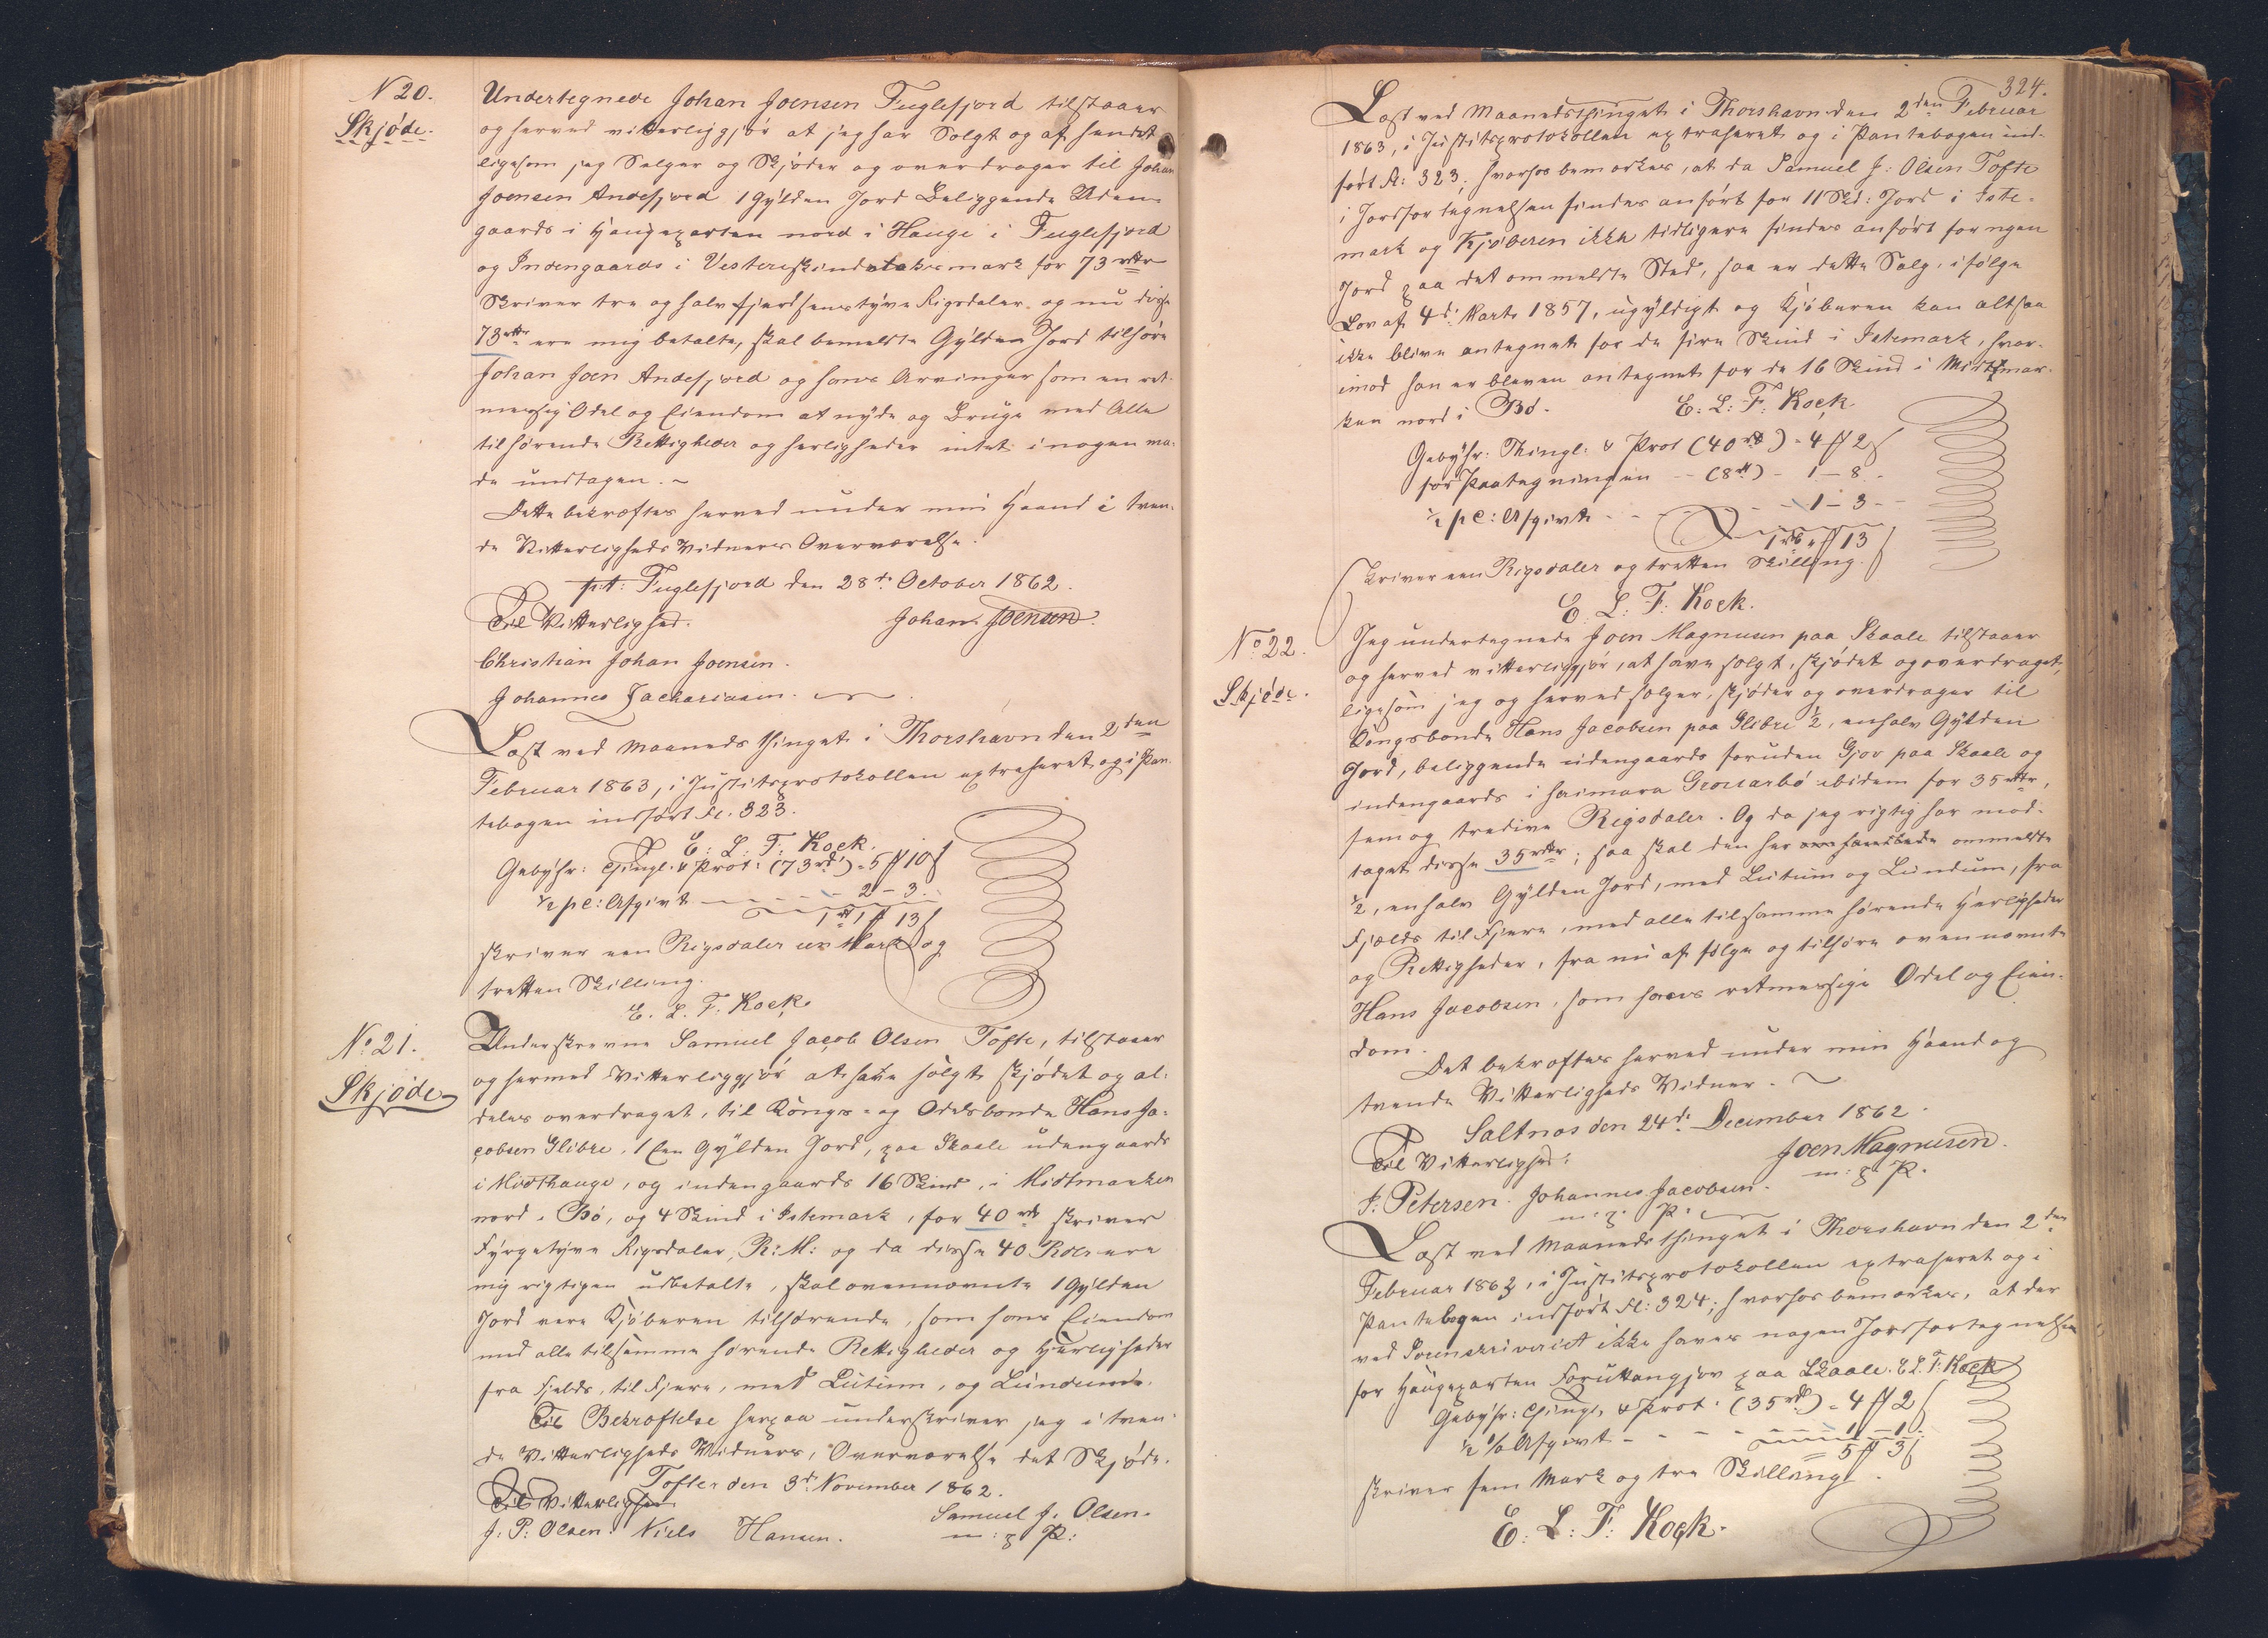 N 20.
Skjöde.
Undertegnede Johan Joensen Fuglefjord tilstaaer
og herved vitterliggjör at jeg har Solgt og af hændet
ligesom jeg Sælger og Skjöder og overdrager til Johan
Joensen Andefjord 1 Gylden Jord Beliggende Uden-
gaards i Haugeparten nord i Hauge i Fuglefjord
og Indengaards i mark for 73 rdlr
Skriver tre og halv fjerdsenstyve Rigsdaler og nu disse
73 rdlr ere mig betalte, skal bemeldte Gylden Jord tilhöre
Johan Joen Andefjord og hans Arvinger som en ret-
mæssig Odel og Eiendom at nyde og Bruge med Alle
tilhörende Rettigheder og herligheder intet i nogen ma-
de undtagen. ~
Dette bekræftes herved under min Haand i tven-
de Vitterligheds Vidners Overværelse.
pt: Fuglefjord den 28de October 1862.
Til Vitterlighed. Johan Joensen.
Christian Johan Joensen.
Johannes Zachariasen.
Læst ved Maanedsthinget i Thorshavn den 2den
Februar 1863, i Justitsprotokollen extraheret og i Pan-
tebogen indfört Fl. 323.
E: L: F: Kock.
Gebyhr: Thingl. & Prot: (73 rd) = 5 ₰ 10 ß
½ pC: Afgivt - - - - 2 - 3.
1 rd 1 ₰ 13 ß
skriver een Rigsdaler een Mark og
tretten Skilling.
E. L. F: Kock.
No. 21.
Skjöde
Underskrevne Samuel Jacob Olsen Tofte, tilstaaer
og hermed Vitterliggjör at have solgt Skjödet og al-
deles overdraget, til Kongs- og Odelsbonde Hans Ja-
cobsen Glibre, 1 Een Gylden Jord, paa Skaale udengaards
i Midthauge, og indengaards 16 Skind, i Midtmarken
nord i Bö, og 4 Skind i Istemark, for 40 rd skriver
Fyrgetyve Rigsdaler, R: M: og da disse 40 Rdlr ere
mig rigtigen udbetalte, skal ovennævnte 1 Gylden
Jord være Kjöberen tilhörende, som hans Eiendom
med alle tilsamme hörende Rettigheder og Herligheder
fra Fjelds, til Fjere, med Lutum, og Lundum.
Til Bekræftelse herpaa underskriver jeg i tven-
de Vitterligheds Vidners, Overværelse det Skjöde.
Tofter den 3d. November 1862.
Til Vitterlighed Samuel J. Olsen.
J: P: Olsen. Niels Hansen. m: p P:
324.
Læst ved Maanedsthinget i Thorshavn den 2den Februar
1863, i Justitsprotokollen extraheret og i Pantebogen ind-
fört Fl: 323; hvorhos bemærkes, at da Samuel J: Olsen Tofte
i Jordfortegnelsen findes anfört for 11 Skd: Jord i Iste-
mark og Kjöberen ikke tidligere findes anfört for ngen
Jord paa det ommeldte Sted, saa er dette Salg, ifölge
Lov af 4d. Marts 1857, ugyldigt og Kjöberen kan altsaa
ikke blive antegnet for de fire Skind i Istemark, hvor-
imod han er bleven antegnet for de 16 Skind i Midtmar-
ken nord i Bö. E: L: F: Kock
Gebyhr: Thingl: & Prot (40 rd) = 4 ₰ 2 ß
for Paategningen - (8 ß) - 1 - 8
½ pC: Afgivt - - - - 1 - 3 -
1 rd " ₰ 13 ß
Skriver een Rigsdaler og tretten Skilling.
E. L: F: Kock.
No. 22.
Skjöde.
Jeg undertegnede Joen Magnusen paa Skaale tilstaaer
og herved vitterliggjör, at have solgt, skjödet og overdraget,
ligesom jeg og herved sælger, skjöder og overdrager til
Kongsbonde Hans Jacobsen paa Glibre ½, enhalv Gylden
Jord, beliggende udengaards foruden Gjov paa Skaale og
indengaards i heimara ibidem for 35 rdlr,
fem og tredive Rigsdaler. Og da jeg rigtig har mod-
taget disse 35 rdlr; saa skal den her ommeldte
½, enhalv Gylden Jord, med Lutum og Lundum, fra
Fjelds til Fjere, med alle tilsamme hörende Herligheder
og Rettigheder, fra nu af fölge og tilhöre ovennævnte
Hans Jacobsen, som hans retmæssige Odel og Eien-
dom.
Det bekræftes herved under min Haand og
tvende Vitterligheds Vidner. ~
Saltnæs den 24d. December 1862.
Til Vitterlighed: Joen Magnusen.
J: Petersen. Johannes Jacobsen. m: p P.
m: p. P.
Læst ved Maanedsthinget i Thorshavn den 2den
Februar 1863, i Justitsprotokollen extraheret og i
Pantebogen indfört Fl: 324; hvorhos bemærkes, at der
ved Sorenskriveriet ikke haves nogen Jordfortegnelse
for Haugeparten Foruttangjov paa Skaale. E. L. F: Kock
Gebyhr: Thingl. & Prot. (35 rd) = 4 ₰ 2 ß
½ % Afgivt - - - - 1 - 1.
5 ₰ 3 ß
skriver fem Mark og tre Skilling.
E: L: F: Kock.